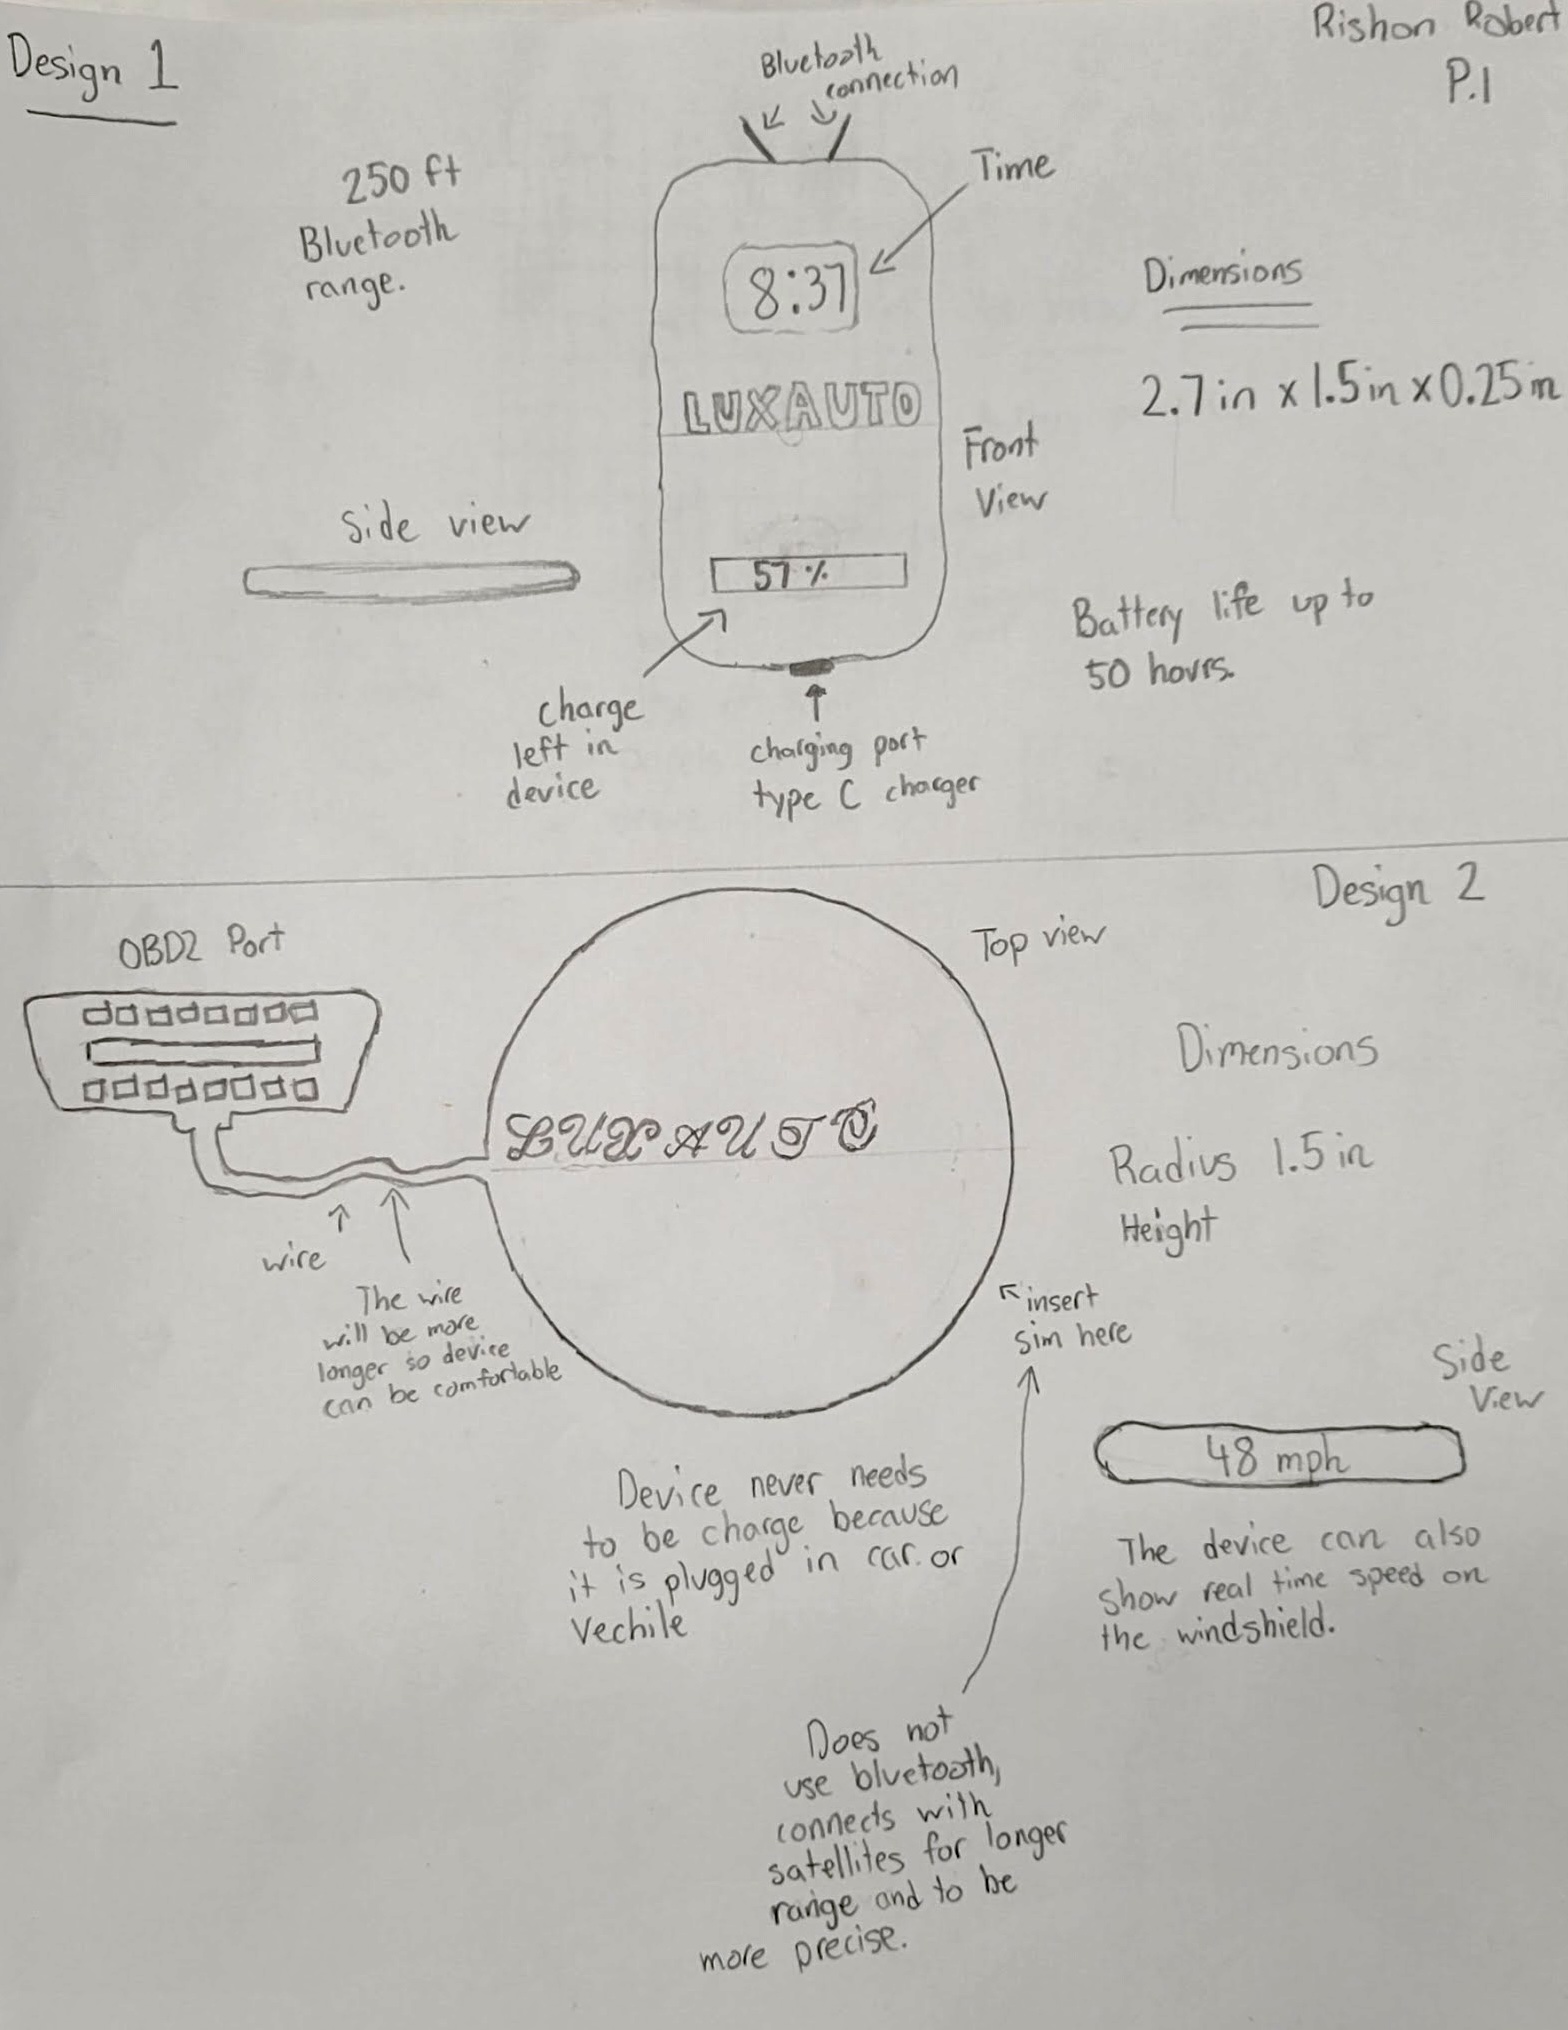 Design 1
Rishon Robert
P.1
Bluetooth
connection
250 ft
Bluetooth
range.
Time
8:37
Dimensions
2.7in x 1.5in x 0.25in
LUXAUTO
Front
View
Side view
57 %
Battery life up to
50 hours.
charge
left in
device
charging port
type C charger
Design 2
OBD2 Port
Top view
Dimensions
LUXAUTO
Radius 1.5 in
Height
wire
The wire
will be more
longer so device
can be comfortable
insert
sim here
Side
View
48 mph
Device never needs
to be charge because
it is plugged in car. or
Vechile
The device can also
show real time speed on
the windshield.
Does not
use bluetooth,
connects with
satellites for longer
range and to be
more precise.